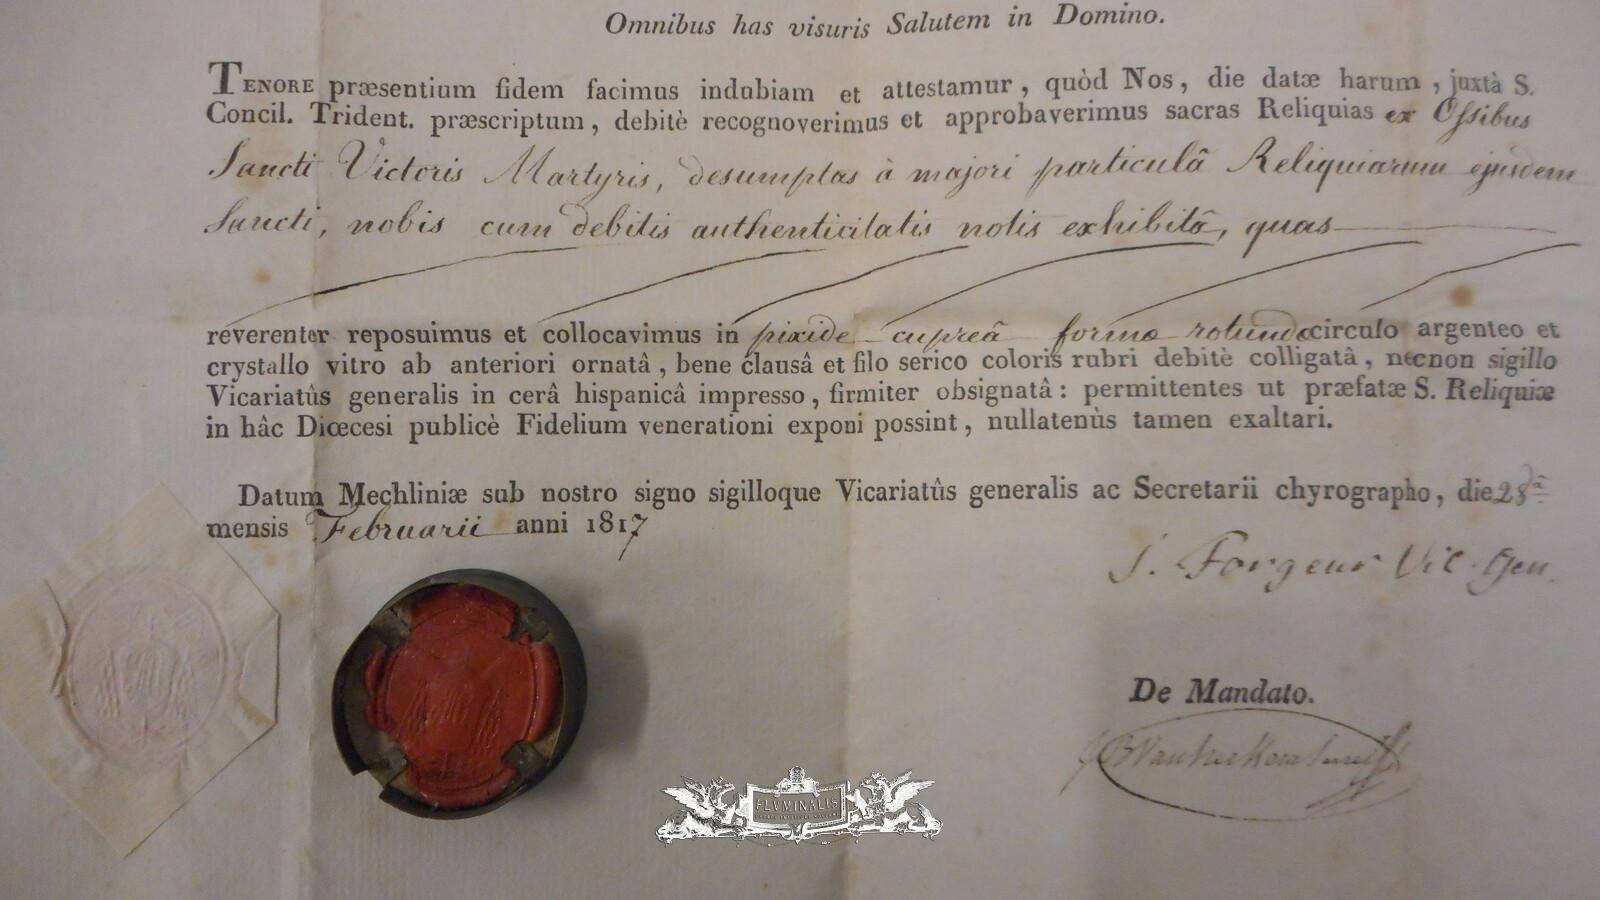 Omnibus has visuris Salutem in Domino.
TENORE præsentium fidem facimus indubiam et attestamur, quòd Nos, die datæ harum, juxtà S.
Concil. Trident. præscriptum, debitè recognoverimus et approbaverimus sacras Reliquias ex Ossibus
Sancti Victoris Martyris, desumptas à majori particulâ Reliquiarum ejusdem
Sancti, nobis cum debitis authenticitatis notis exhibitâ, quas
reverenter reposuimus et collocavimus in pixide cupreâ forma rotunda circulo argenteo et
crystallo vitro ab anteriori ornatâ, bene clausâ et filo serico coloris rubri debitè colligatâ, necnon sigillo
Vicariatûs generalis in cerâ hispanicâ impresso, firmiter obsignatâ: permittentes ut præfatæ S. Reliquiæ
in hâc Diœcesi publicè Fidelium venerationi exponi possint, nullatenùs tamen exaltari.
Datum Mechliniæ sub nostro signo sigilloque Vicariatûs generalis ac Secretarii chyrographo, die 28â
mensis Februarii anni 1817
J. Forgeur Vic. Gen.
De Mandato.
FLVMINALIS